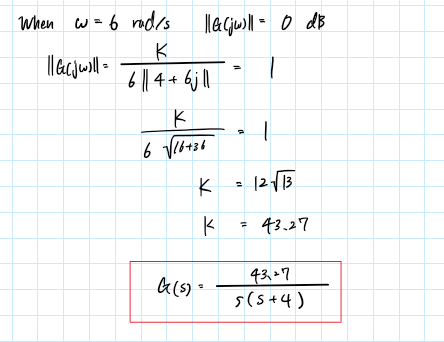 When ω = 6 rad/s ||G(jω)|| = 0 dB
||G(jω)|| = K / (6 ||4 + 6j||) = 1
K / (6 √(16+36)) = 1
K = 12√13
K = 43.27
G(s) = 43.27 / (s(s+4))